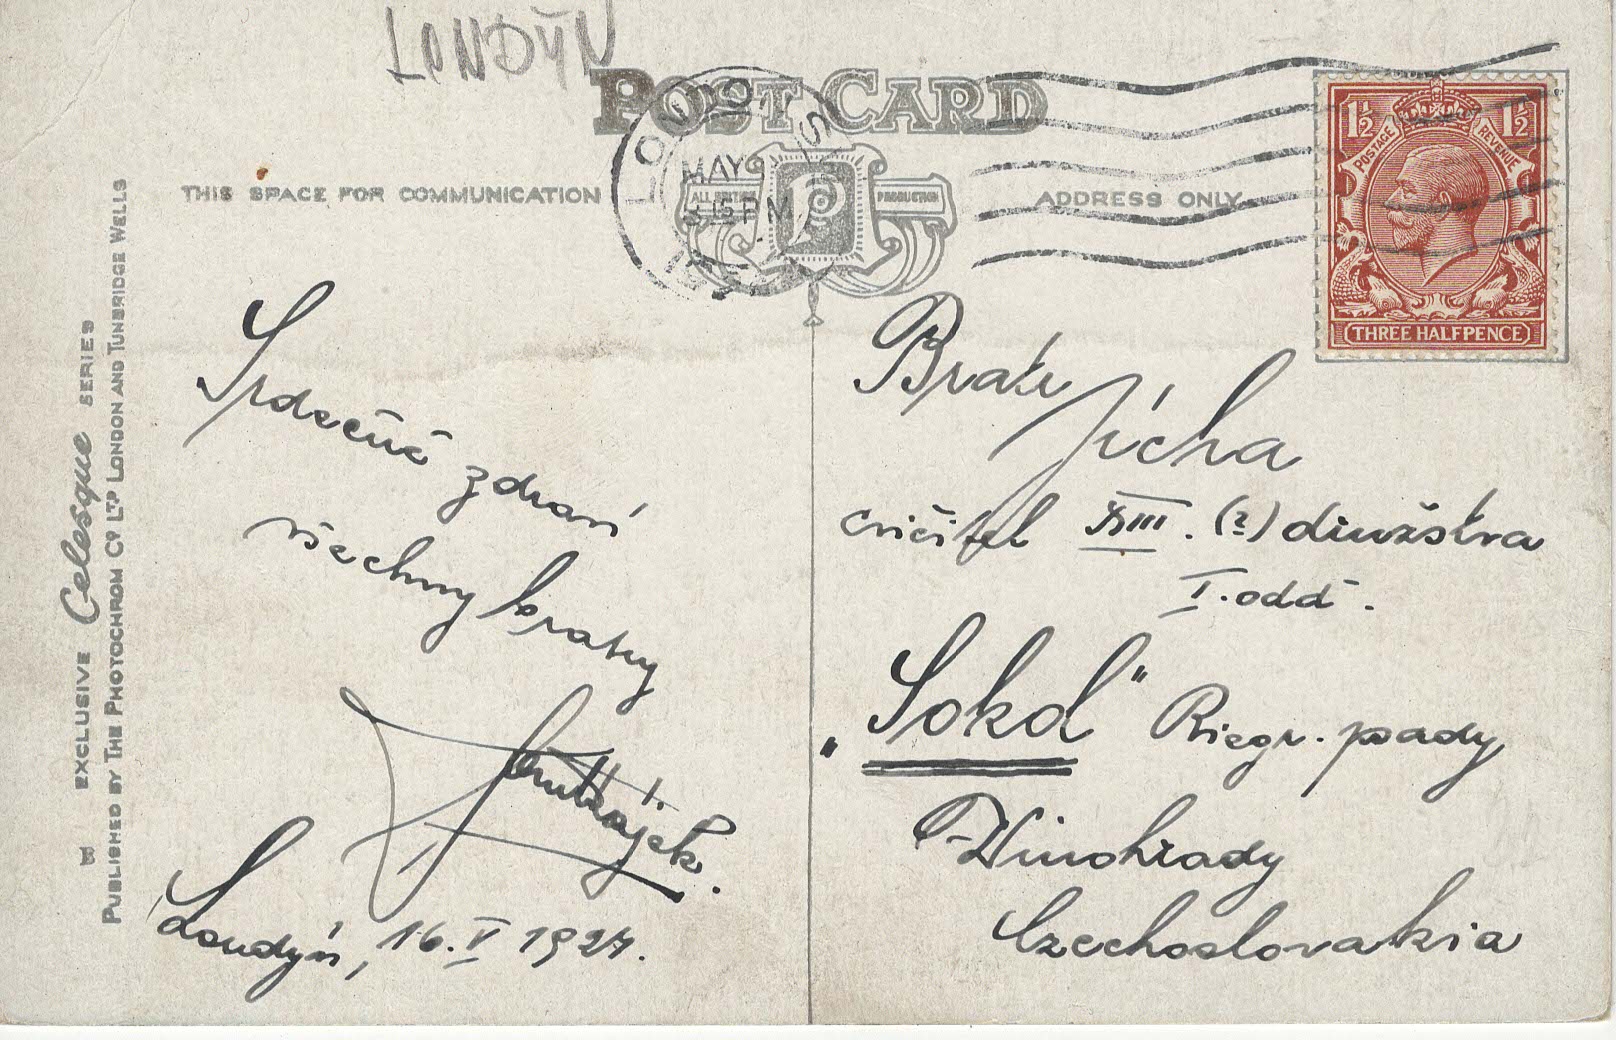 LONDÝN
POST CARD
THIS SPACE FOR COMMUNICATION
ALL BRITISH PRODUCTION
ADDRESS ONLY
LONDON
MAY
PM
1½ 1½
POSTAGE REVENUE
THREE HALFPENCE
EXCLUSIVE Celesque SERIES
PUBLISHED BY THE PHOTOCHROM Co. LTD LONDON AND TUNBRIDGE WELLS
Srdečně zdraví
všechny bratry
Hájek.
Londýn, 16. V 1927.
Bratr
Jícha
cvičitel XIII. (2) družstva
I. odd.
„Sokol" Riegr. sady
Vinohrady
Czechoslovakia